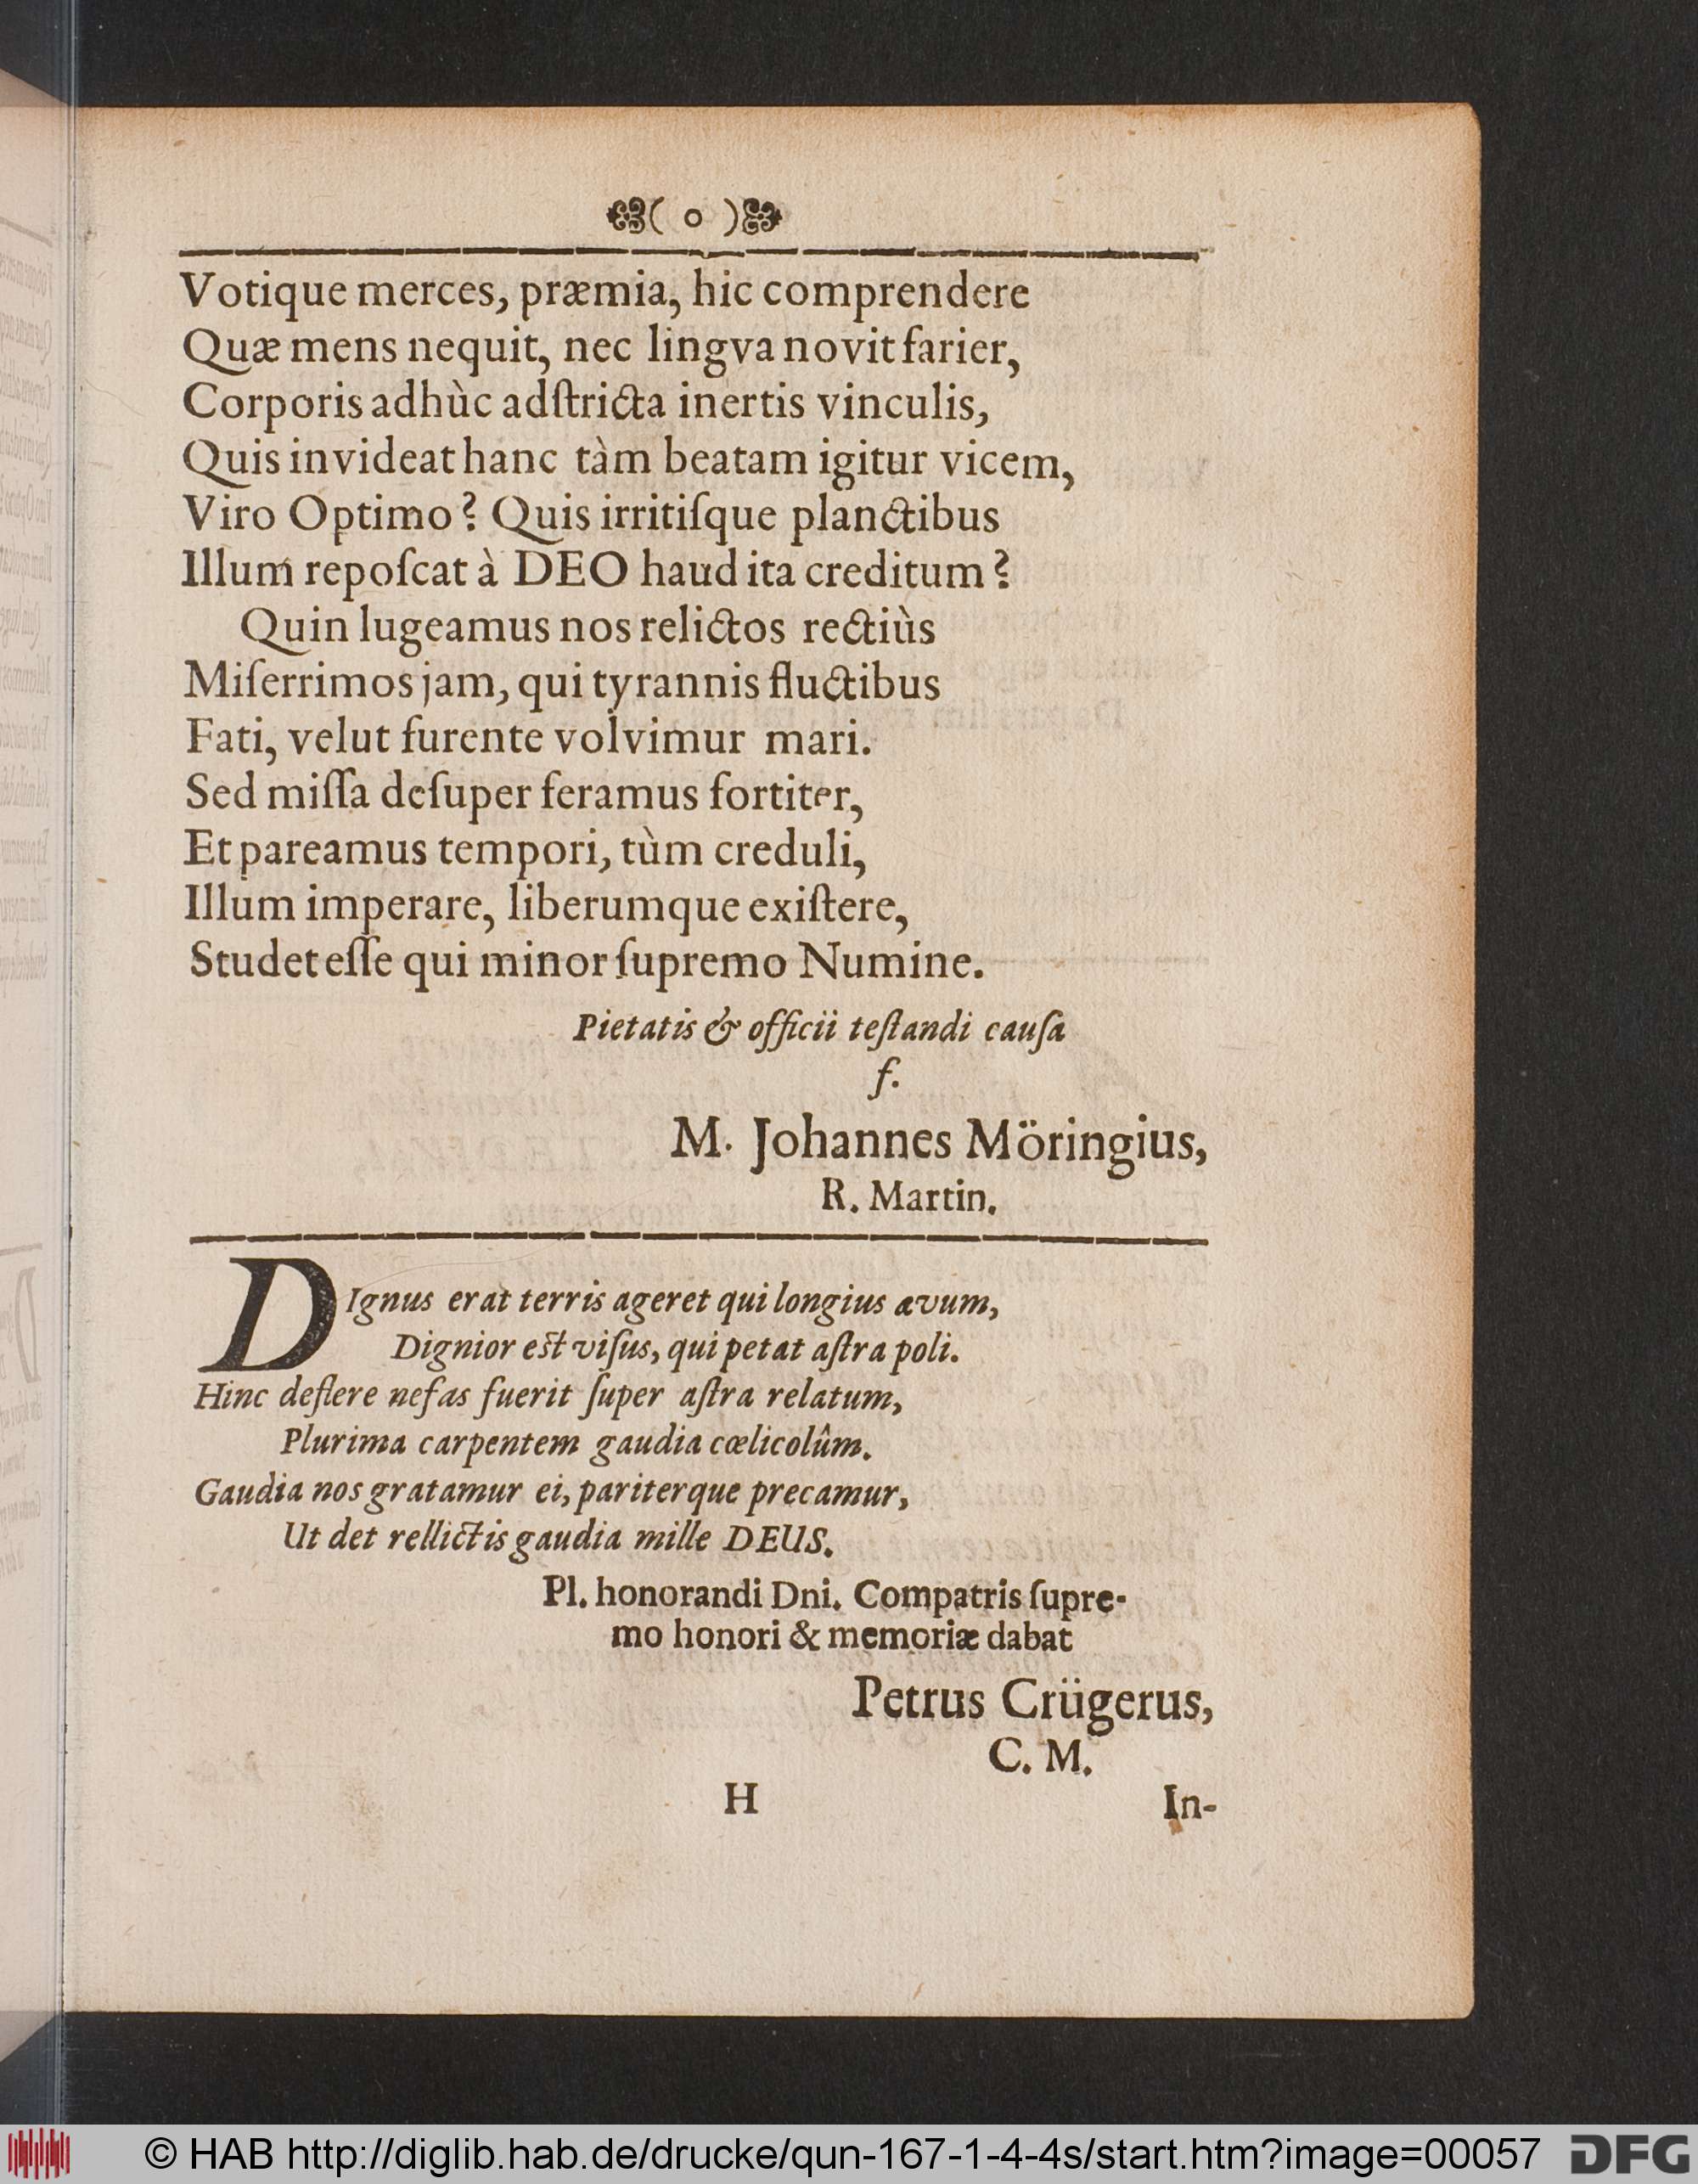 ( o )
Votique merces, præmia, hic comprendere
Quæ mens nequit, nec lingva novit farier,
Corporis adhùc adſtricta inertis vinculis,
Quis invideat hanc tàm beatam igitur vicem,
Viro Optimo? Quis irritiſque planctibus
Illum repoſcat à DEO haud ita creditum?
Quin lugeamus nos relictos rectiùs
Miſerrimos jam, qui tyrannis fluctibus
Fati, velut furente volvimur mari.
Sed miſſa deſuper feramus fortiter,
Et pareamus tempori, tùm creduli,
Illum imperare, liberumque exiſtere,
Studet eſſe qui minor ſupremo Numine.
Pietatis & officii teſtandi cauſa
f.
M. Johannes Möringius,
R. Martin.
DIgnus erat terris ageret qui longius ævum,
Dignior est viſus, qui petat aſtra poli.
Hinc deflere nefas fuerit ſuper aſtra relatum,
Plurima carpentem gaudia cœlicolûm.
Gaudia nos gratamur ei, pariterque precamur,
Ut det rellictis gaudia mille DEUS.
Pl. honorandi Dni. Compatris ſupre-
mo honori & memoriæ dabat
Petrus Crügerus,
C. M.
H In-
© HAB http://diglib.hab.de/drucke/qun-167-1-4-4s/start.htm?image=00057 DFG